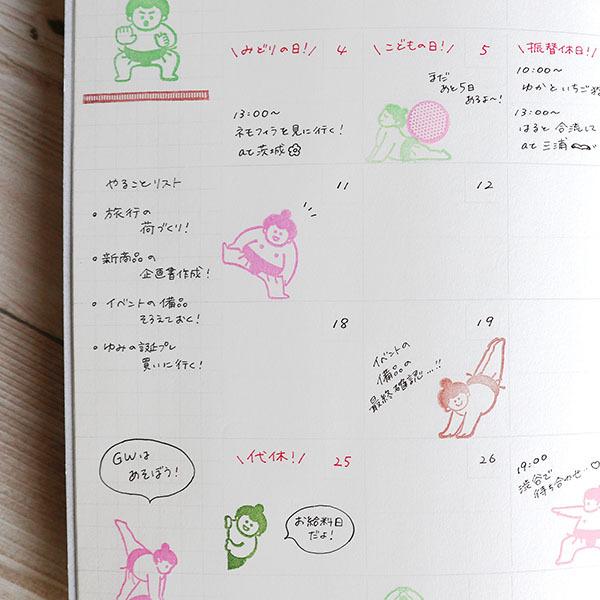 \みどりの日!/ 4
\こどもの日!/ 5
\振替休日!/
13:00〜
ネモフィラを見に行く!
at 茨城
まだ
あと5日
あるよ〜!
10:00〜
ゆかといちご狩
13:00〜
はると合流して
at 三浦
やることリスト
• 旅行の
荷づくり!
• 新商品の
企画書作成!
• イベントの備品
そろえておく!
• ゆみの誕プレ
買いに行く!
11
12
18
19
イベントの
備品の
最終確認…!!
GWは
あそぼう!
\代休!/ 25
お給料日
だよ!
26
19:00
渋谷で
待ち合わせ…♡